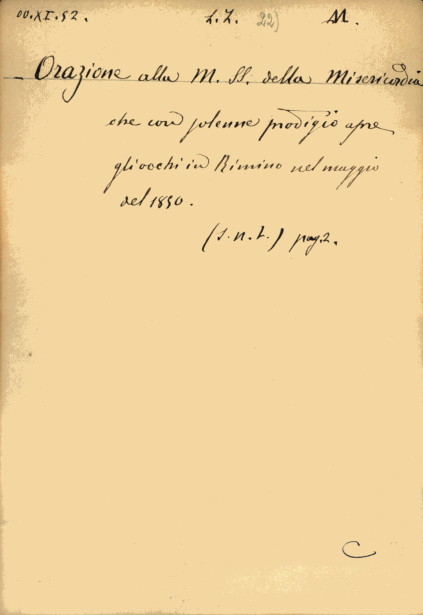 00.XI.52. L.Z. 22) M.
Orazione alla M. SS. della Misericordia
che con solenne prodigio apre
gli occhi in Rimino nel maggio
del 1850.
(s.n.t.) pag. 2.
C